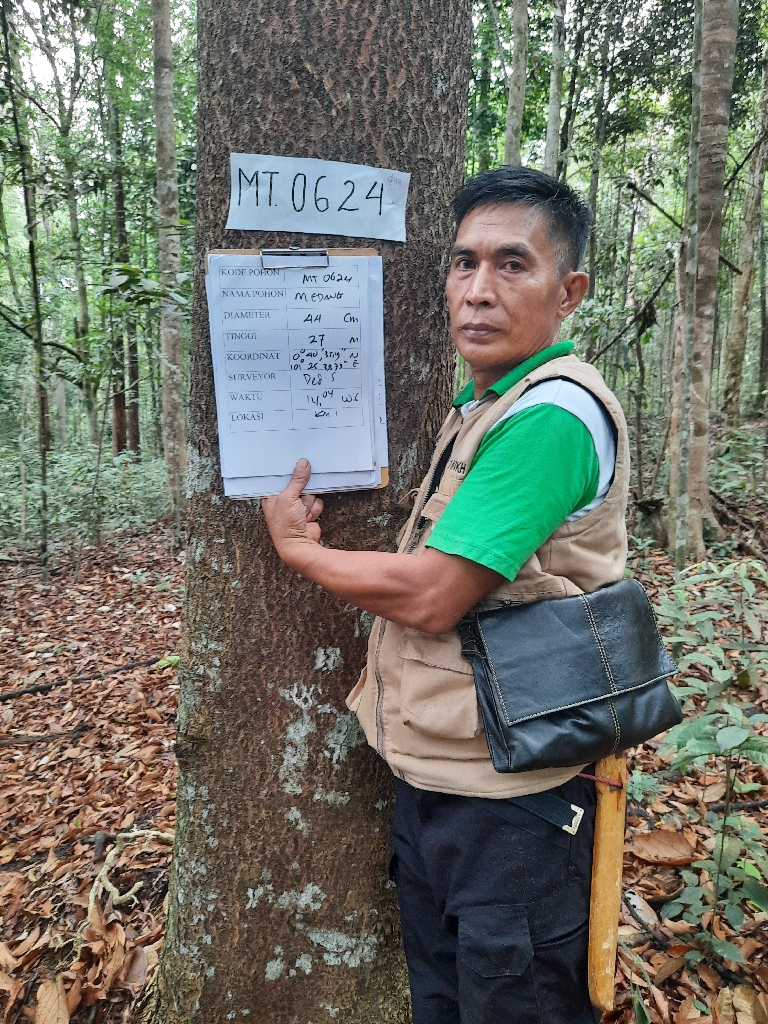 MT. 0624
KODE POHON MT 0624
NAMA POHON MEDANG
DIAMETER 44 Cm
TINGGI 27 M
KOORDINAT 0° 40' N
101° 25' E
SURVEYOR Deb S
WAKTU 14,04 WIB
LOKASI Km 1